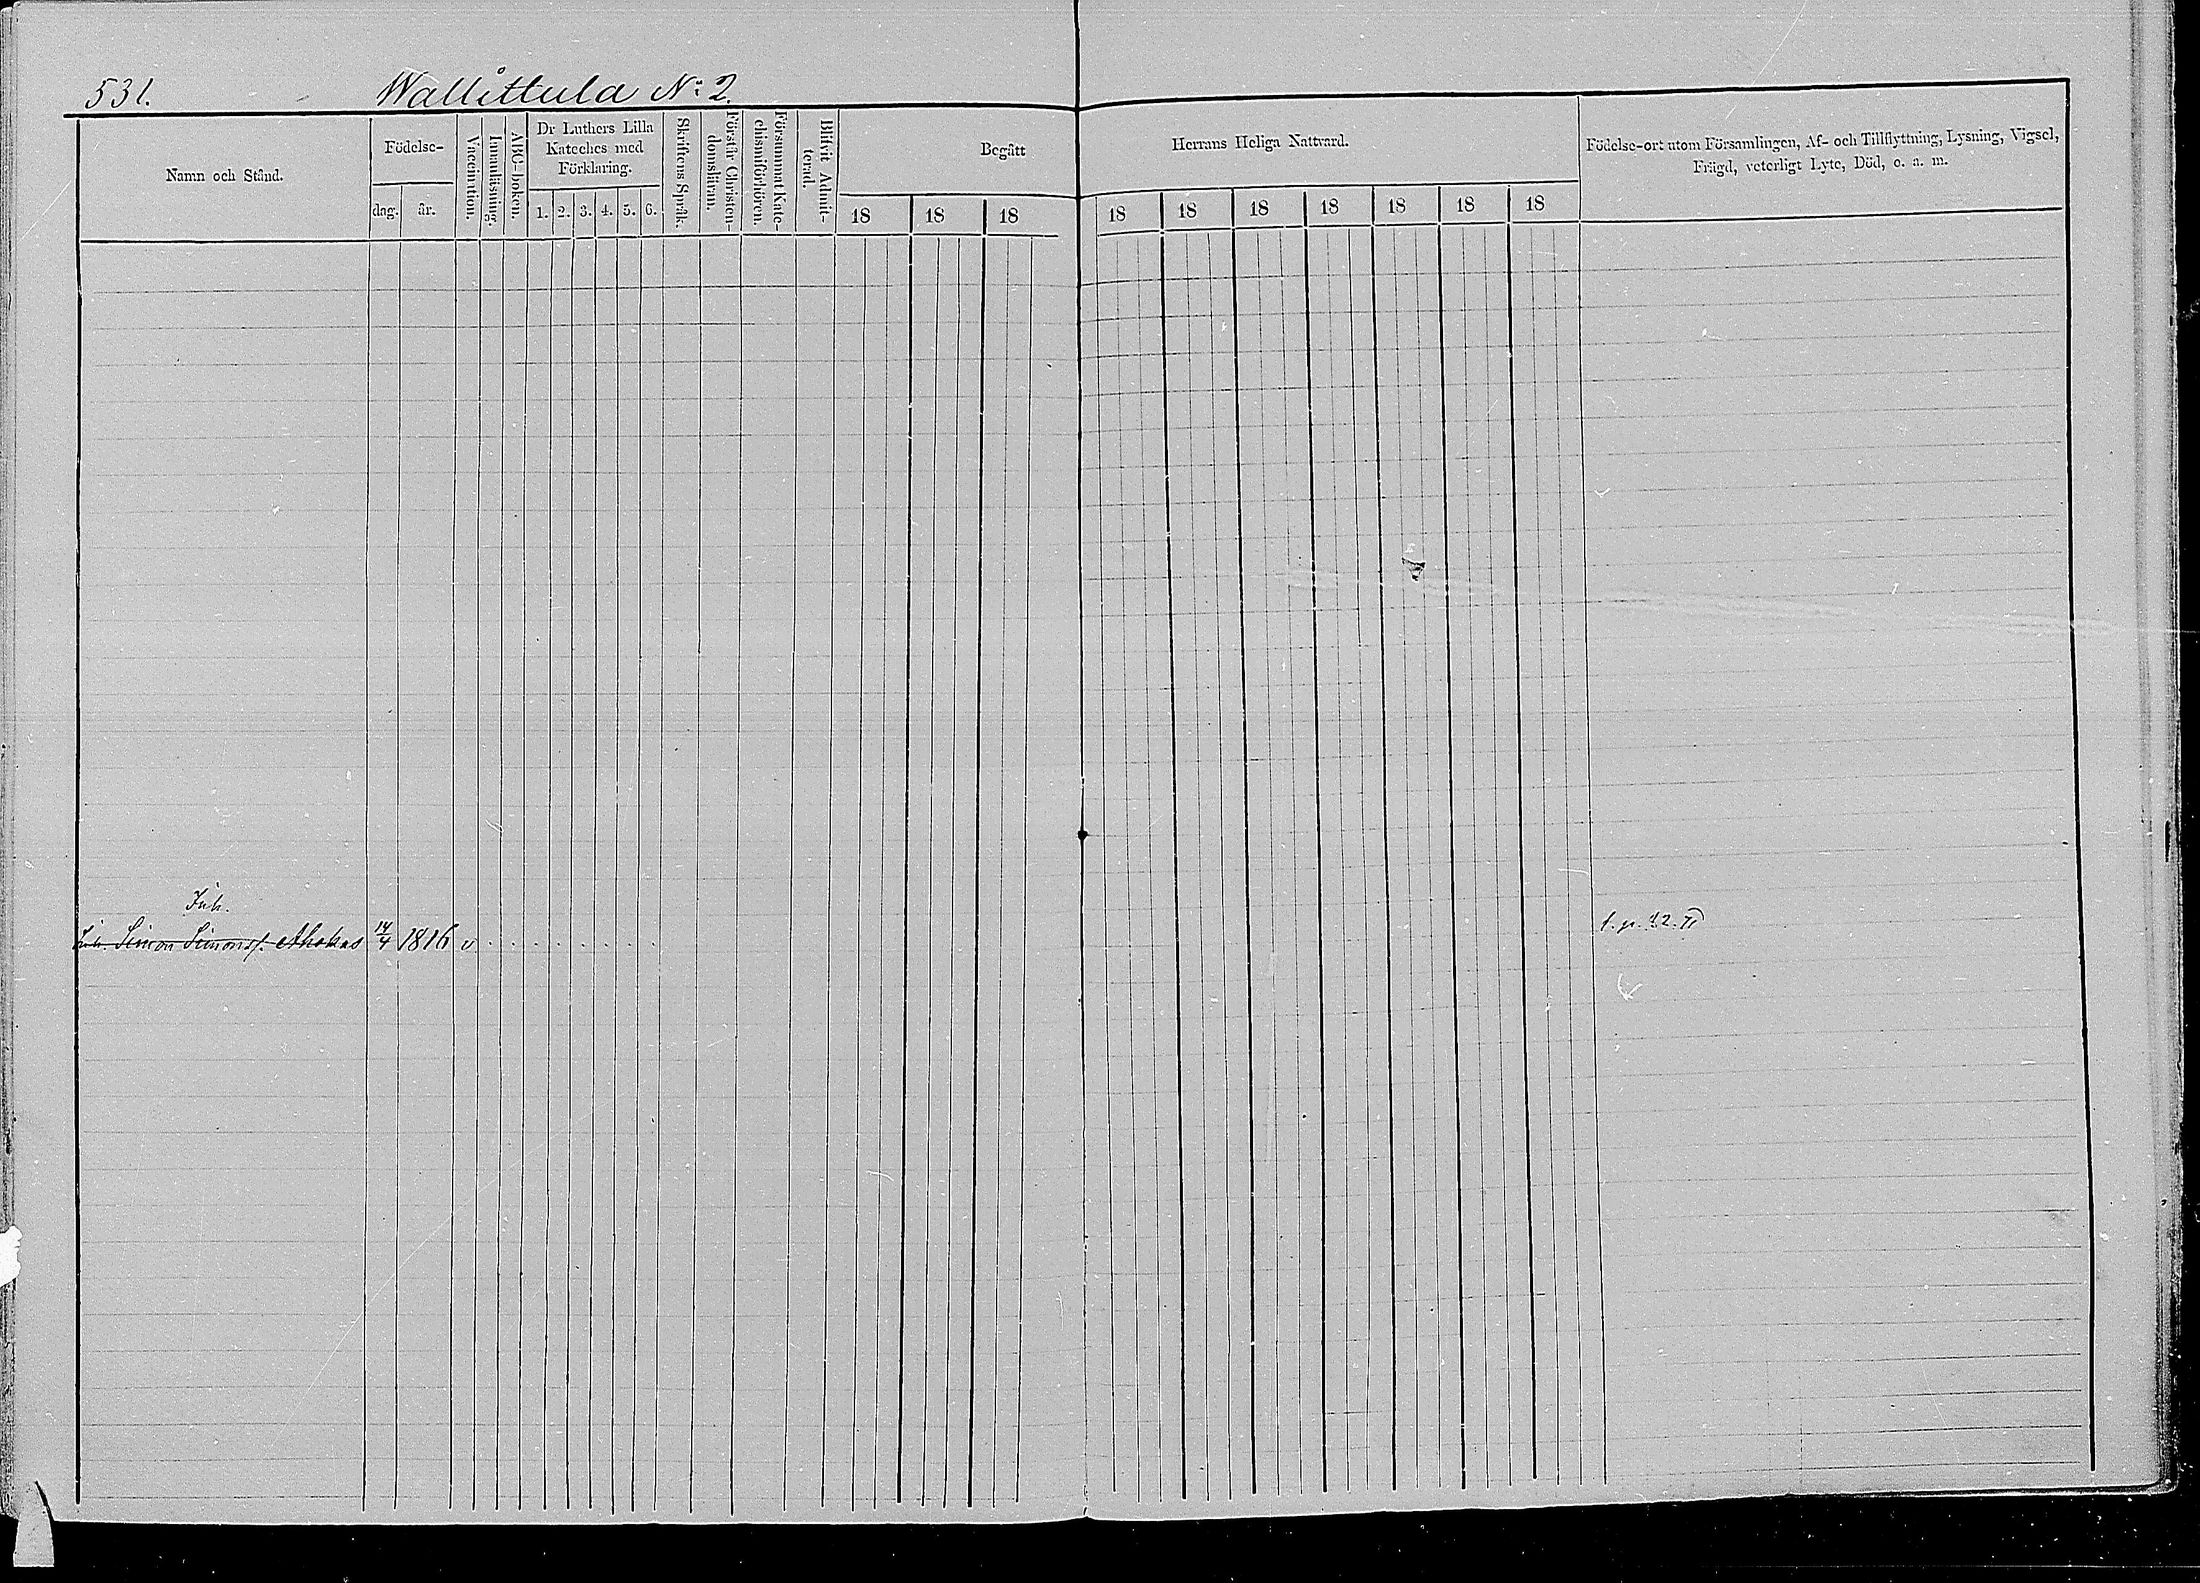 531. Wallittula No: 2.
Namn och Stånd.
Födelse-
dag. år.
Vaccination.
Innanläsning.
ABC-boken.
Dr Luthers Lilla
Kateches med
Förklaring.
1. 2. 3. 4. 5. 6.
Skriftens Språk.
Förstår Christen-
domsläran.
Försummat Kate-
chismiförhören.
Blifvit Admit-
terad.
Begått Herrans Heliga Nattvard.
18 18 18 18 18 18 18 18 18 18
Födelse-ort utom Församlingen, Af- och Tillflyttning, Lysning, Vigsel,
Frägd, veterligt Lyte, Död, o. a. m.
Inh.
Inh. Simon Simonss. Ahokas 14/4 1816 v . . . . . . . .